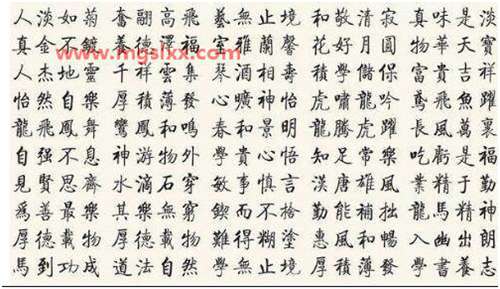 人淡如菊 奮翮高飛 藝無止境 和敬清寂 真味是淡
真金不鍍 養德澤福 室雅蘭馨 花好月圓 物華天寶
www.mgslxx.com
人杰地靈 千祥雲集 琴酒相壽 積學儲保 富貴吉祥
怡然自樂 厚積薄發 心曠神怡 虎嘯龍吟 鳶飛魚躍
龍飛鳳舞 鸞鳳和鳴 春和景明 龍騰虎躍 長風萬裏
自强不息 神游物外 學貴心悟 知足常樂 吃虧是福
見賢思齊 水滴石穿 敏事慎言 漢唐雄風 業精于勤
爲善最樂 其樂無窮 鍥而不捨 勤能補拙 龍馬精神
厚德載物 難得糊塗 惠風和暢 入幽出朗
馬到功成 道法自然 學無止境 厚積薄發 學書養志